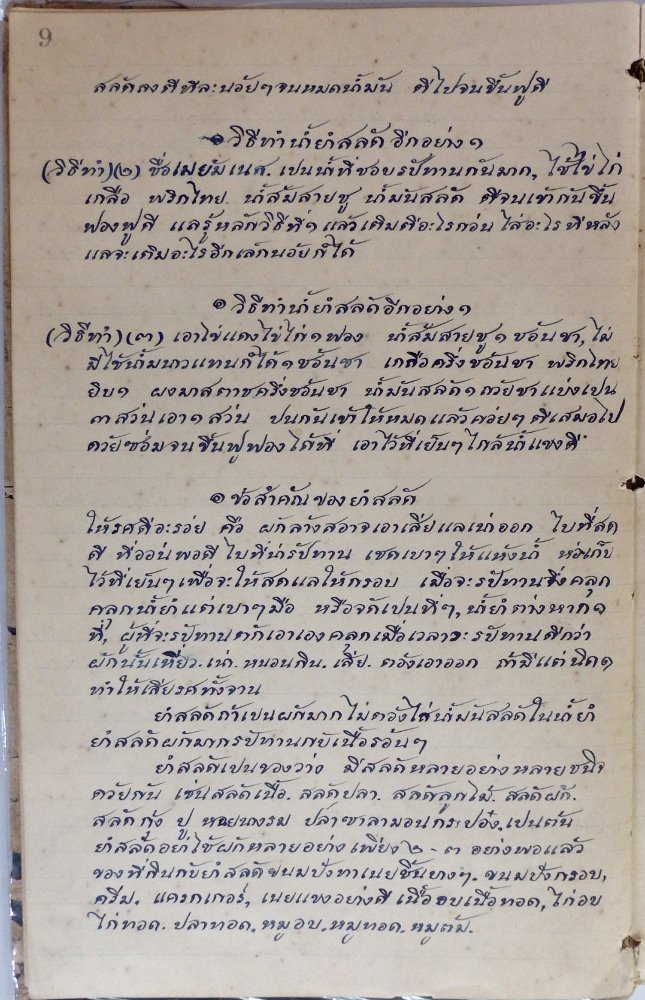 9
สลัดลงตีทีละนอัยๆจนหมดน้ำมัน ตีไปจนขึ้นฟูดี
๑ วิธีทำน้ำยำสลัด อีกอย่าง ๑
(วิธีทำ) (๒) ชื่อเมยัมเนศ. เปนน้ำที่ชอบรปัทานกันมาก, ใช้ไข่ไก่
เกลือ พริกไทย. น้ำส้มสายชู น้ำมันสลัด ตีจนเข้ากันขึ้น
ฟองฟูดี แลรู้หลักวิธีที่๑ แล้วเติมคือะไรก่อน ใส่อะไร ทีหลัง
แลจะเติมอะไรอีกเล้กนอัยก็ได้
๑ วิธีทำน้ำยำสลัดอีกอย่าง ๑
(วิธีทำ) (๓) เอาไข่แดงไข่ไก่ ๑ ฟอง น้ำส้มสายชู ๑ ชอันชา, ไม่
มีใช้น้ำมนาวแทนก็ได้ ๑ ชอันชา เกลือครึ่งชอันชา พริกไทย
ยิบ ๑ ผงมาสตาชครึ่งชอันชา น้ำมันสลัด ๑ ถวัยชาแบ่งเปน
๓ สว่นเอา ๑ สว่น ปนกันเข้าให้หมดแล้วคว่ยๆ ตีเสมอไป
ดวัยซอ่มจนขึ้นฟูฟองได้ที่ เอาไว้ที่เย็นๆ ใกล้น้ำแขงดี
๑ ข้อสำคัญของยำสลัด
ให้รศดีอะรอ่ย คือ ผักล้างสอาจเอาเสี่ยแลเน่าออก ใบที่สด
ดี ที่ออ่นพอดี ใบที่น่ารปัทาน เชดเบาๆ ให้แห้งน้ำ ห่อเก็บ
ไว้ที่เย็นๆ เพื่อจะให้สดแลให้กรอบ เมื่อจะรปัทานจึ่งคลุก
คลุกน้ำยำแต่เบาๆ มือ หรือจัดเปนที่ๆ, น้ำยำต่างหาก ๑
ที่, ผู้ที่จะรปัทานตักเอาเองคลุกเมื่อเวลาจะรปัทานดีกว่า
ผักนั้นเหี่ยว. เน่า. หนอนกิน. เสี่ย. ควังเอาออก ถ้ามีแต่นิด ๑
ทำให้เสียรศทั้งจาน
ยำสลัดถ้าเปนผักมากไม่ควังใส่น้ำมันสลัดในน้ำยำ
ยำสลัดผักมากรปัทานกับเนื้อรอ้นๆ
ยำสลัดเปนของว่าง มีสลัดหลายอย่างหลายชนิจ
ดวัยกัน เช่นสลัดเนื้อ. สลัดปลา. สลัดลูกไม้. สลัดผัก.
สลัดกุ้ง ปู หอยนางรม ปลาซาลามอนกระป๋อง. เปนต้น
ยำสลัดอย่าใช้ผักหลายอย่าง เพียง ๒ - ๓ อย่างพอแล้ว
ของที่กินกับยำสลัดขนมปังทาเนยชิ้นบางๆ. ขนมปังกรอบ,
ครีม. แครกเกอร์, เนยแขงอย่างดี เนื้ออบเนื้อทอด, ไก่อบ
ไก่ทอด. ปลาทอด. หมูอบ. หมูทอด. หมูต้ม.